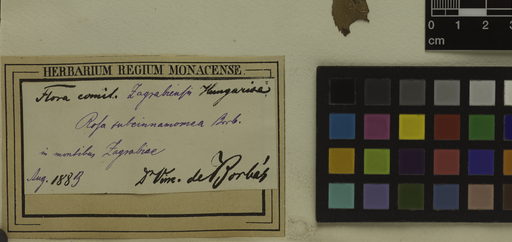 HERBARIUM REGIUM MONACENSE.
Flora comit. Zagrabiensis Hungariae.
Rosa subcinnamomea Borb.
in montibus Zagrabiae
Aug. 1885 Dr Vinc. de Borbás
0 1 2 3
cm